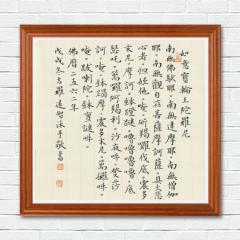 如意寶輪王陀羅尼
南無佛馱耶。南無達摩耶。南無僧伽
耶。南無觀自在菩薩摩訶薩。具大悲
心者。怛姪他。唵。斫羯羅伐底。震多
末尼。摩訶。鉢蹬謎。嚕嚕嚕嚕。底
瑟吒。羅阿羯利。沙夜吽。癹莎
訶。唵。鉢蹋摩。震多末尼。攞吽。
唵。跋喇陀。鉢亶謎吽。
佛曆二五六二年
戊戌冬吉羅智沐手敬書